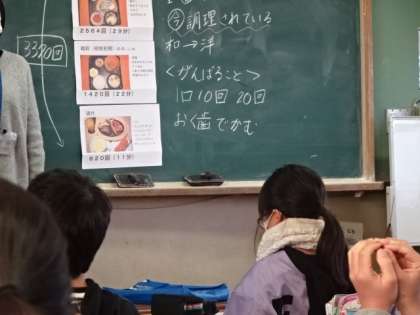 3320回
2564回(29分)
1420回(22分)
現代
620回(11分)
今調理されている
和→洋
<がんばること>
1口10回 20回
おく歯でかむ